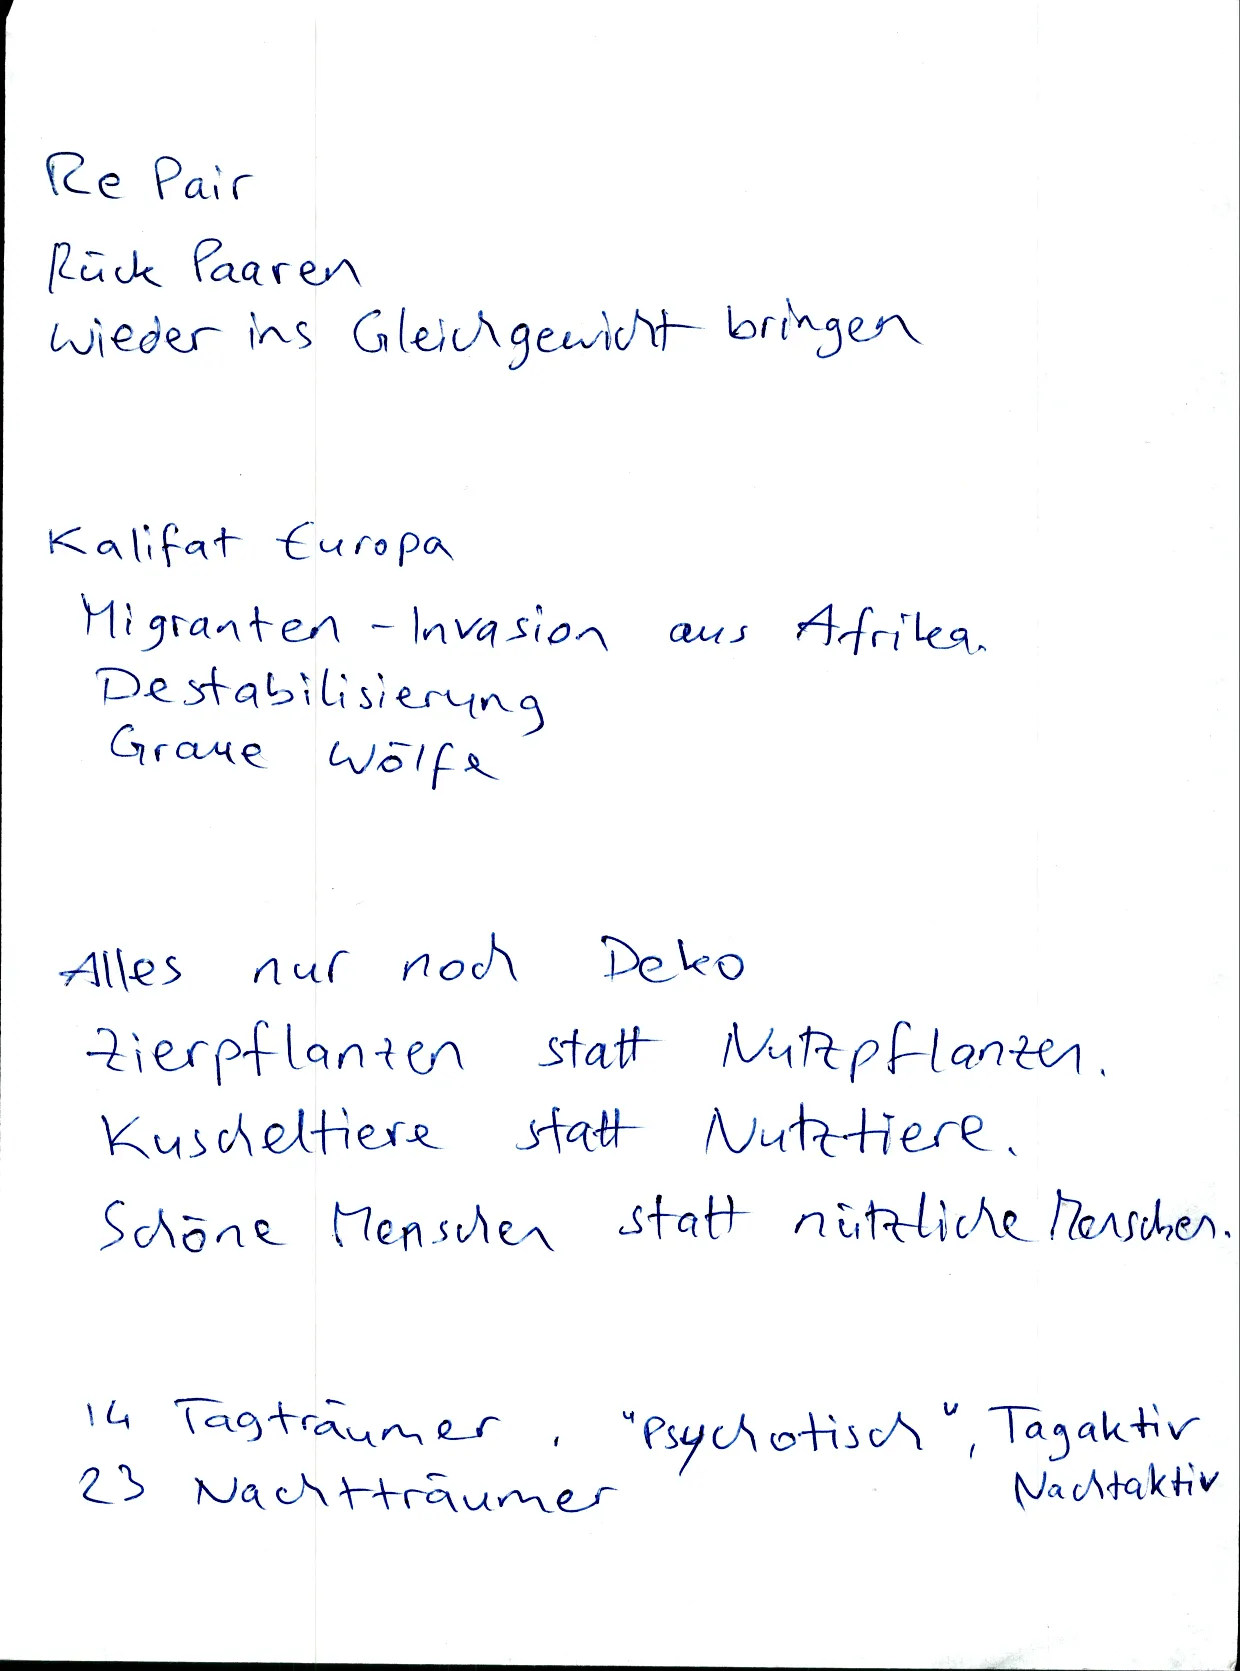 Re Pair
Rück Paaren
wieder ins Gleichgewicht bringen
Kalifat Europa
Migranten - Invasion aus Afrika.
Destabilisierung
Graue Wölfe
Alles nur noch Deko
Zierpflanzen statt Nutzpflanzen.
Kuscheltiere statt Nutztiere.
Schöne Menschen statt nützliche Menschen.
14 Tagträumer, "Psychotisch", Tagaktiv
23 Nachtträumer Nachtaktiv